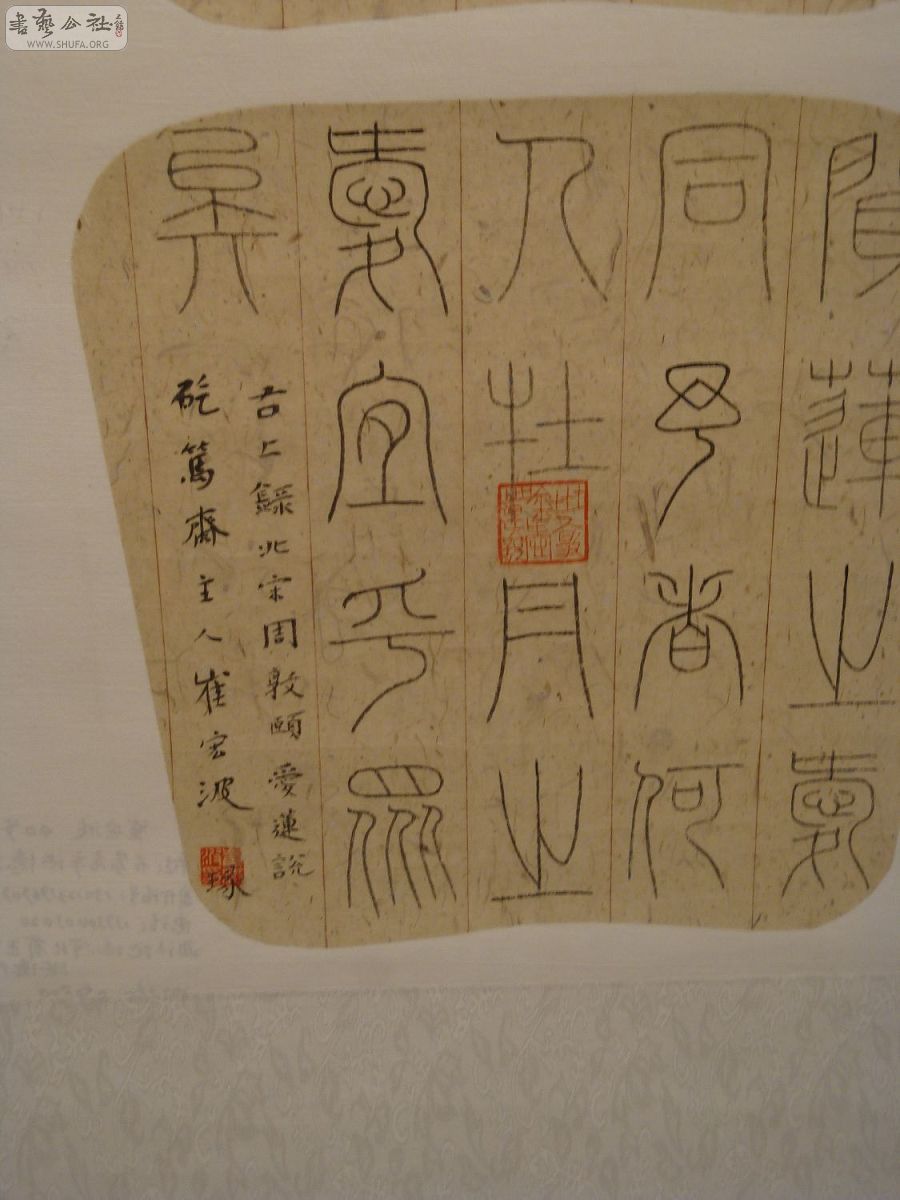 書藝公社
WWW.SHUFA.ORG
聞蓮之愛
同予者何
人牡丹之
愛宜乎眾
矣
右上錄北宋周敦頤愛蓮說
主人崔宏波